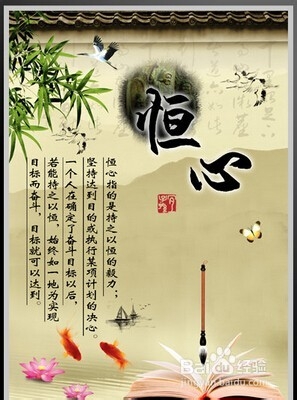 恒心
恒心指的是持之以恒的毅力；
坚持达到目的或执行某项计划的决心。
一个人在确定了奋斗目标以后，
若能持之以恒，始终如一地为实现
目标而奋斗，目标就可以达到。
Baidu经验